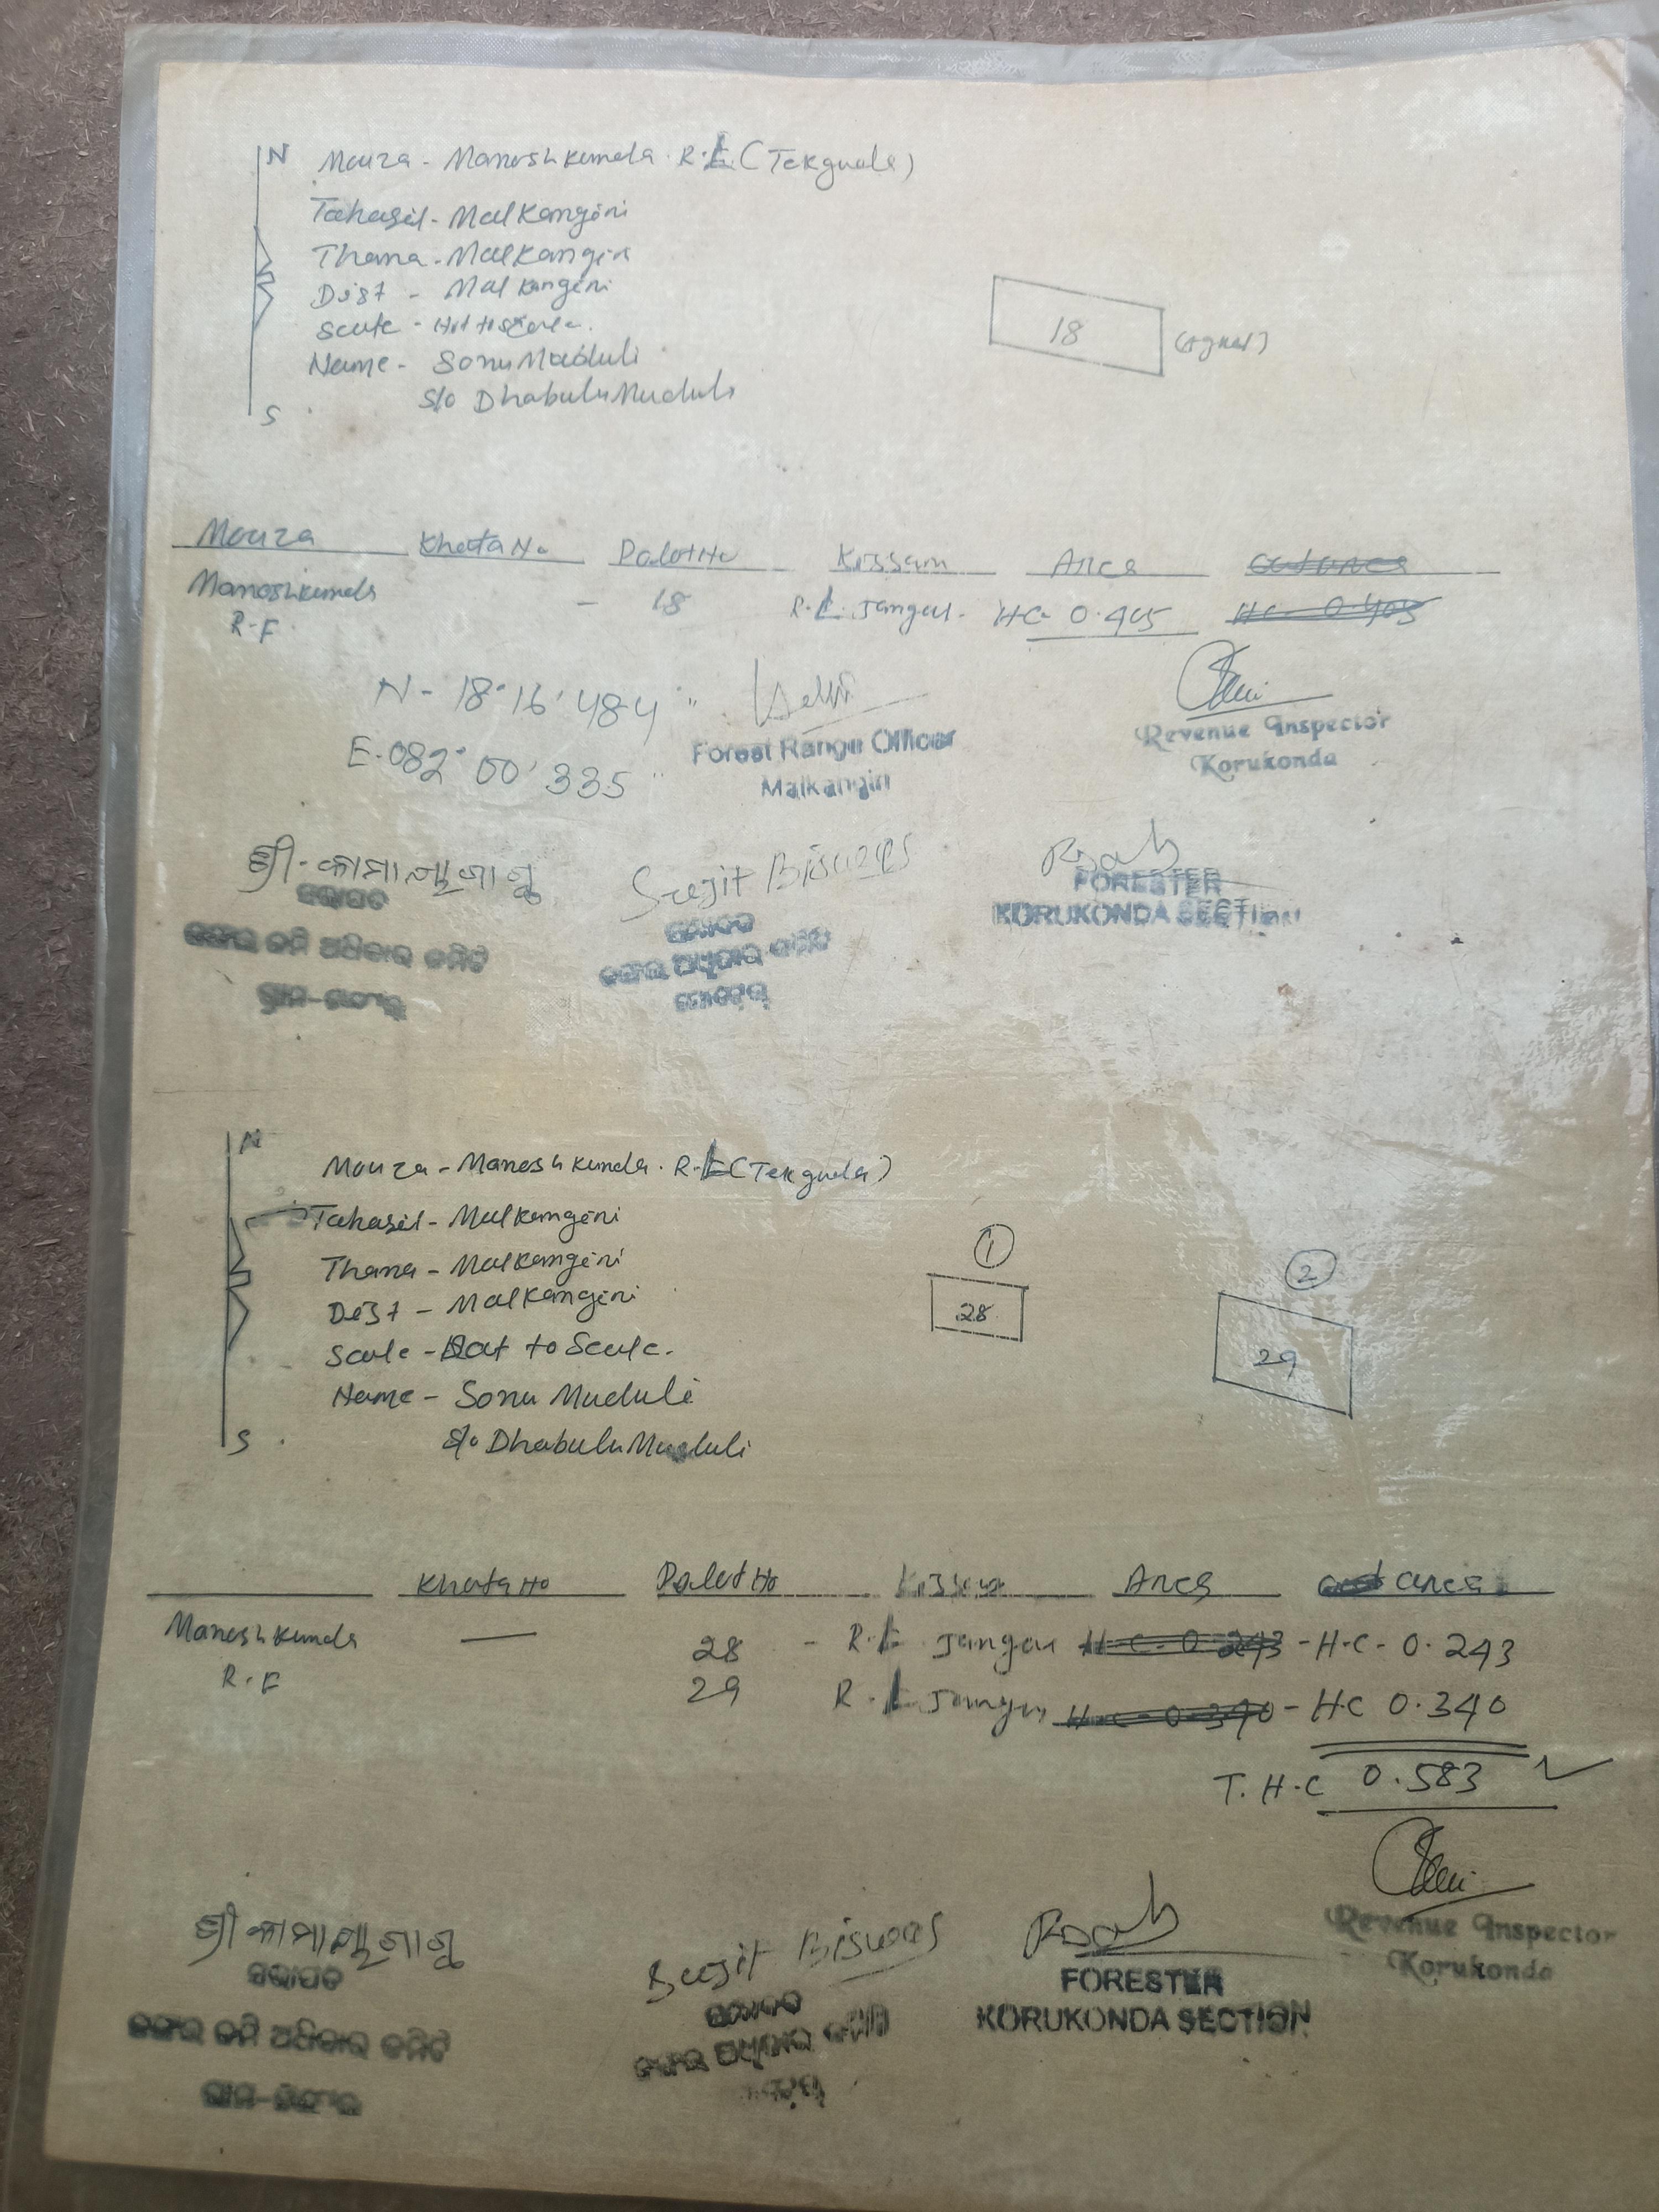 N
Mouza - Manoshkumda. R.F. (Tekguda)
Tahasil - Malkangiri
Thana - Malkangiri
Dist - Malkangiri
Scale - Not to Scale.
Name - Sonu Muduli
S/o Dhabulu Muduli
S
18
Mouza Khata No Palot No Kissam Area
Manoshkumda - 18 R.F. Jangal. HC- 0.405
R.F
N- 18°16'484"
E-082°00'335"
Forest Range Officer
Malkangiri
Revenue Inspector
Korukonda
Sujit Biswas
FORESTER
KORUKONDA SECTION
ଜଙ୍ଗଲ ଜମି ଅଧିକାର କମିଟି
N
Mouza - Maneshkunda. R.F (Tekguda)
Tahasil - Malkangiri
Thana - Malkangiri
Dist - Malkangiri
Scale - Not to Scale.
Name - Sonu Muduli
S/o Dhabulu Muduli
S
1
28
2
29
Khata No Palot No Kissam Area area
Maneshkunda — 28 - R.F Jangal H.C-0.243 - H.C- 0.243
R.F 29 R.F Jangal H.C-0.340 - H.C 0.340
T. H.C 0.583
Revenue Inspector
Korukonda
Sujit Biswas
FORESTER
KORUKONDA SECTION
ଜଙ୍ଗଲ ଜମି ଅଧିକାର କମିଟି